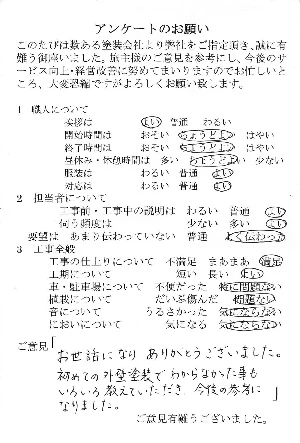 アンケートのお願い
このたびは数ある塗装会社より弊社をご指定頂き、誠に有
難う御座いました。施主様のご意見を参考にし、今後のサ
ービス向上・経営改善に努めてまいりますのでお忙しいと
ころ、大変恐縮ですがよろしくお願い致します。
1 職人について
挨拶は よい 普通 わるい
開始時間は おそい ちょうどよい はやい
終了時間は おそい ちょうどよい はやい
昼休み・休憩時間は 多い ちょうどよい 少ない
服装は わるい 普通 よい
対応は わるい 普通 よい
2 担当者について
工事前・工事中の説明は わるい 普通 よい
伺う頻度は 少ない 多い よい
要望は あまり伝わっていない 普通 よく伝わった
3 工事全般
工事の仕上りについて 不満足 まあまあ 満足
工期について 短い 長い よい
車・駐車場について 不便だった 特に問題ない
植栽について だいぶ傷んだ 問題ない
音について うるさかった 気にならない
においについて 気になる 気にならない
ご意見「お世話になり ありがとうございました。
初めての外壁塗装でわからなかった事も
いろいろ教えていただき、今後の参考に
なりました。」
ご意見有難うございました。